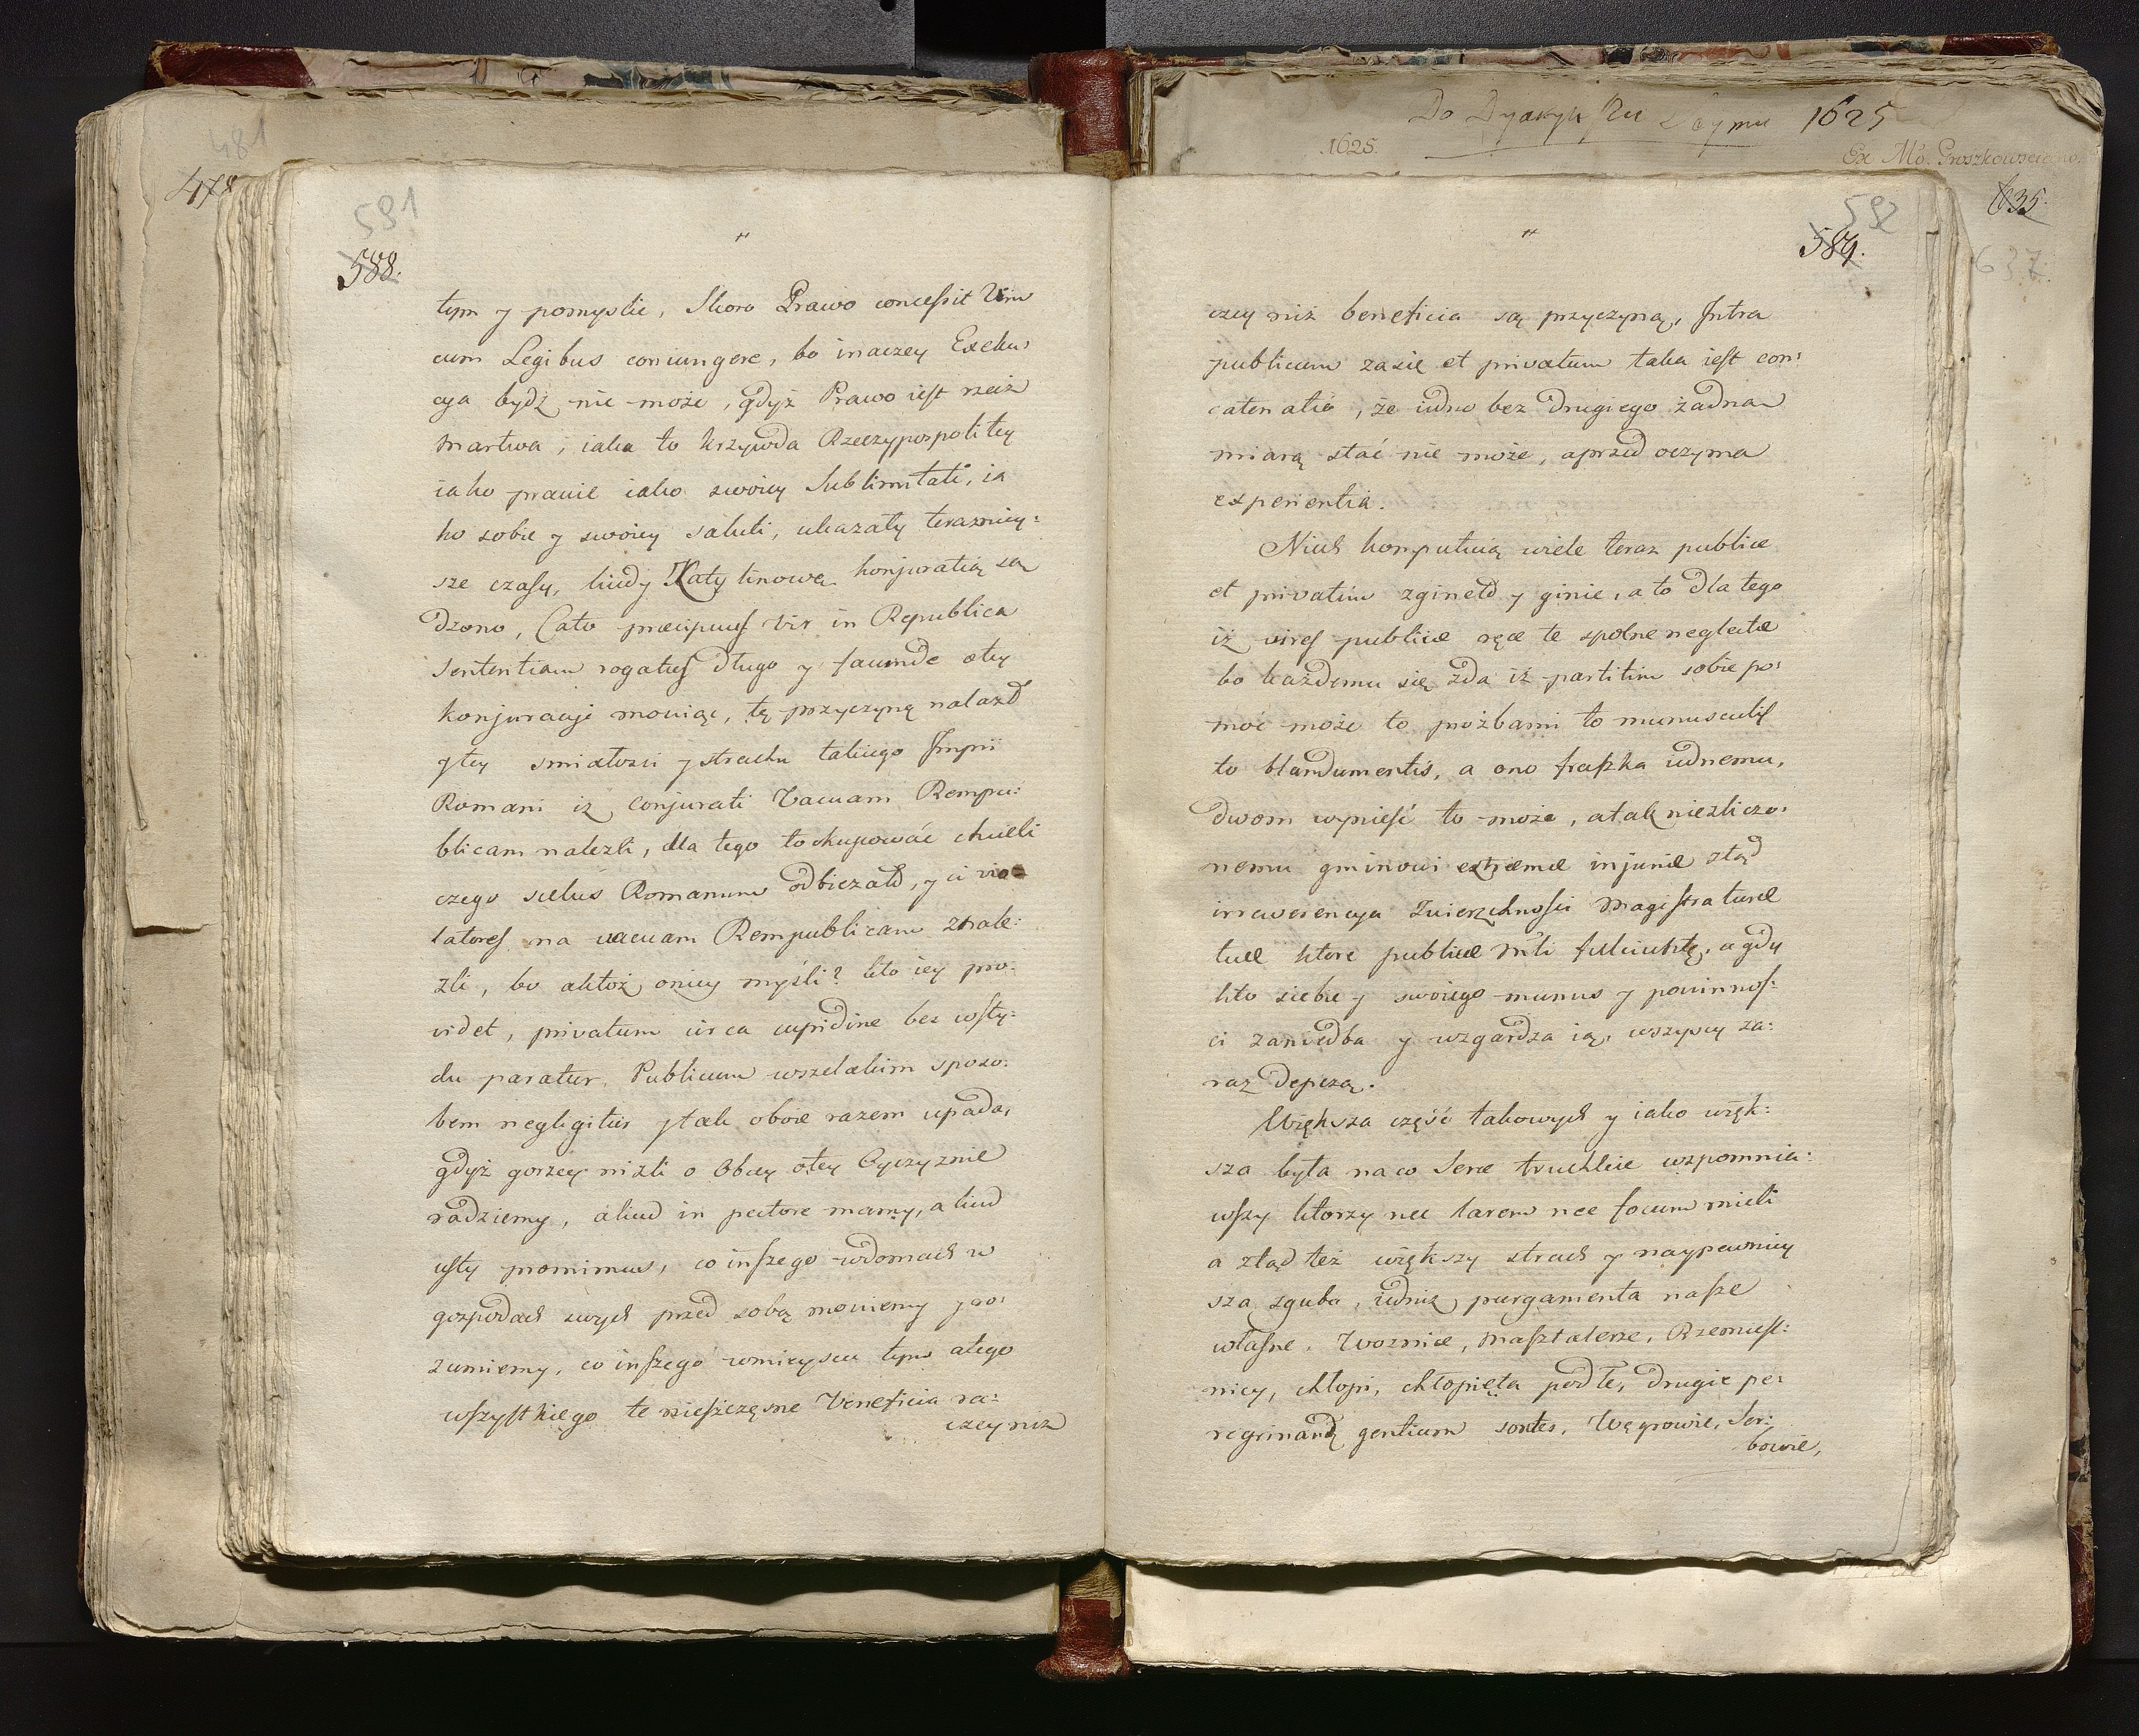 481
478
591
588.
tym y pomyslie, Skoro Prawo concessit Vim
cum Legibus coniungere, bo inaczey Exeku:
cya bydź nie może, gdyż Prawo iest rzecz
martwa, iaka to krzywda Rzeczypospolitey
iako prawie iako swoiey Sublimitati, ia
ko sobie y swoiey saluti, ukazały teraźniey:
sze czasy, kiedy Katylinową konjuratią są
dzono, Cato præcipuus Vir in Republica
Sententiam rogatus długo y facunde otey
konjuracyi mowiąc, tę przyczynę nalazł
ytey smiałosci ystrachu takiego Impii
Romani iż conjurati Vacuam Rempu:
blicam nalezli, dla tego to okupować chcieli
czego scelus Romanum odbiezało, y ci vio
latores na vacuam Rempublicam znale:
zli, bo aktoż oniey myśli? kto iey pro:
videt, privatum circa cupidine bez wsty:
du paratur, Publicum wszelakim sposo:
bem negligitur ytak oboie razem upada,
gdyż gorzey nizli o Obcey otey Oyczyznie
radziemy, aliud in pectore mamy, aliud
usty promimus, co inszego wdomach w
gospodach swych przed sobą mowiemy yro:
zumiemy, co inszego wmieyscu tym atego
wszystkiego te nieszczęsne Veneficia ra:
czey niz
Do Dyaryuszu Seymu 1625
1625.
Ex Mo. Proszkowsciano.
635.
637.
592
589.
czey niż beneficia są przyczyną, Intra
publicum zasię et privatum taka iest con:
catenatio, że iedno bez drugiego żadna
miarą stać nie może, aprzed oczyma
experientia.
Niech komputuią wiele teraz publice
et privatim zginęło y ginie, a to dla tego
iż vires publicæ ręce te spolne neglectæ
bo każdemu się zda iż partitim sobie po:
moć może to proźbami to munusculis
to blandumentis, a ono fraszka iednemu,
dwom wynieść to może, atak niezliczo:
nemu gminowi extremæ injuriæ ztąd
irreverencya Zwierzchności Magistraturæ
tuæ ktore publice mti fulciuntę, agdy
kto siebie y swoiego munus y powinnos:
ci zaniedba y wzgardza ią, wszyscy za:
raz depczą.
Większa część takowych y iako więk:
sza była na co Serce truchleie wzpomnia:
wszy ktorzy nec larem nec focum mieli
a ztąd też większy strach y naypewniey
sza zguba, iedniż purgamenta nasze
własne, Woznice, Masztalerze, Rzemiesl:
nicy, chłopi, chłopięta podłe, drugie pe:
regrinarū gentium sontes, Węgrowie, Ser:
bowie,